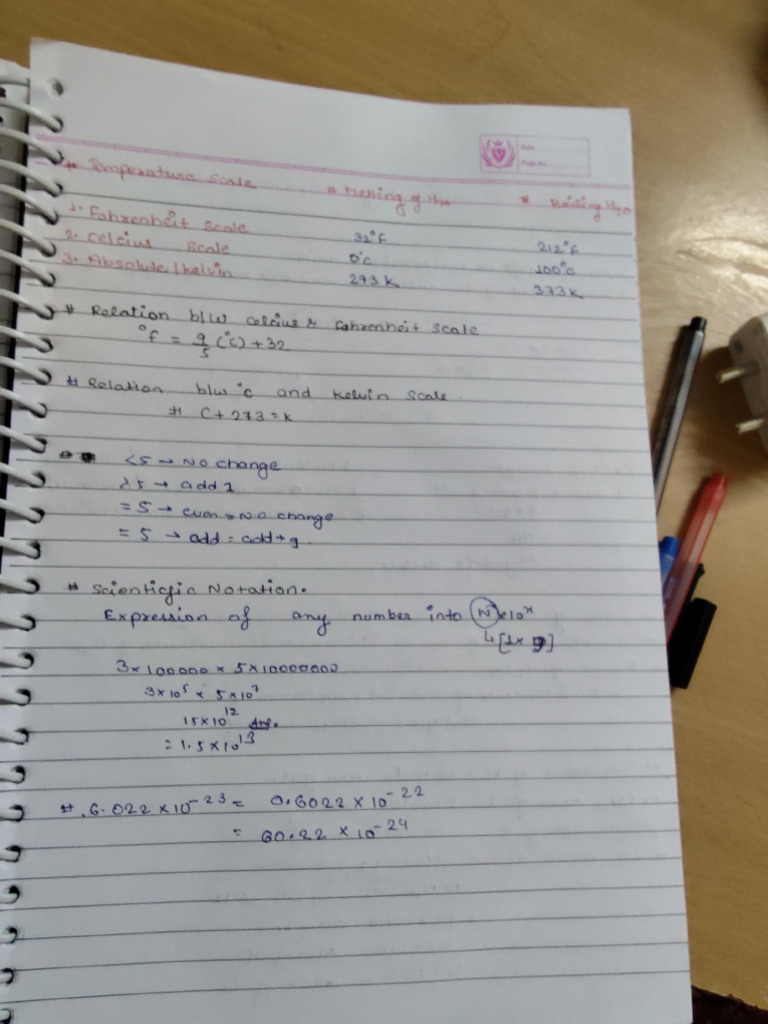 Date
Page No.
# Temperature Scale # Melting of H2O # Boiling H2O
1. Fahrenheit Scale 32°F 212°F
2. Celcius Scale 0°C 100°C
3. Absolute / Kelvin 273 K 373 K
# Relation b/w celcius & Fahrenheit scale
°F = 9/5 (°C) + 32
# Relation b/w °C and Kelvin Scale.
# C + 273 = K
<5 → No change
>5 → add 1
= 5 → even = No change
= 5 → odd = add +
# Scientific Notation.
Expression of any number into N × 10ˣ
3 × 100000 × 5 × 10000000
3 × 10⁵ × 5 × 10⁷
15 × 10¹² Ans.
= 1.5 × 10¹³
# 6.022 × 10⁻²³ = 0.6022 × 10⁻²²
= 60.22 × 10⁻²⁴